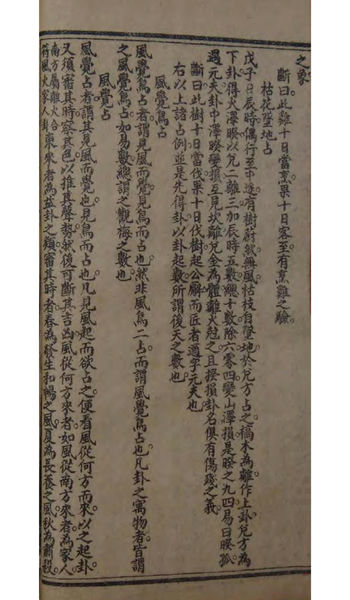 之象
斷曰此雞十日當烹果十日客至有烹雞之驗
枯花墜地占
戊子日辰時偶行至中途有樹蔚然無風枯枝自墜地於兌方占之槁木為離作上卦兌方為
下卦得火澤睽以兌二離三加辰時五數總十數除六零四變山澤損是睽之九四易曰睽孤
遇元夫卦中澤睽變損互見坎離兌金為體離火剋之且睽損卦名俱有傷殘之義
斷曰此樹十日當伐果十日伐樹起公廨而匠者適字元夫也
右以上諸占例並是先得卦以卦起數所謂後天之數也
風覺鳥占
風覺鳥占者謂見風而覺見鳥而占也然非風鳥二占而謂風覺鳥占也凡卦之寓物者皆謂
之風覺鳥占如易數總謂之觀梅之數也
風覺占
風覺占者謂其見風而覺也見鳥而占也凡見風起而欲占之便看風從何方而來以之起卦
又須審其時察其色以推其聲勢然後可斷其吉凶風從何方來者如風從南方來者為家人
南方屬離火合得風火家人卦東來者為益卦之類審其時者春為發生和暢之風夏為長養之風秋為肅殺